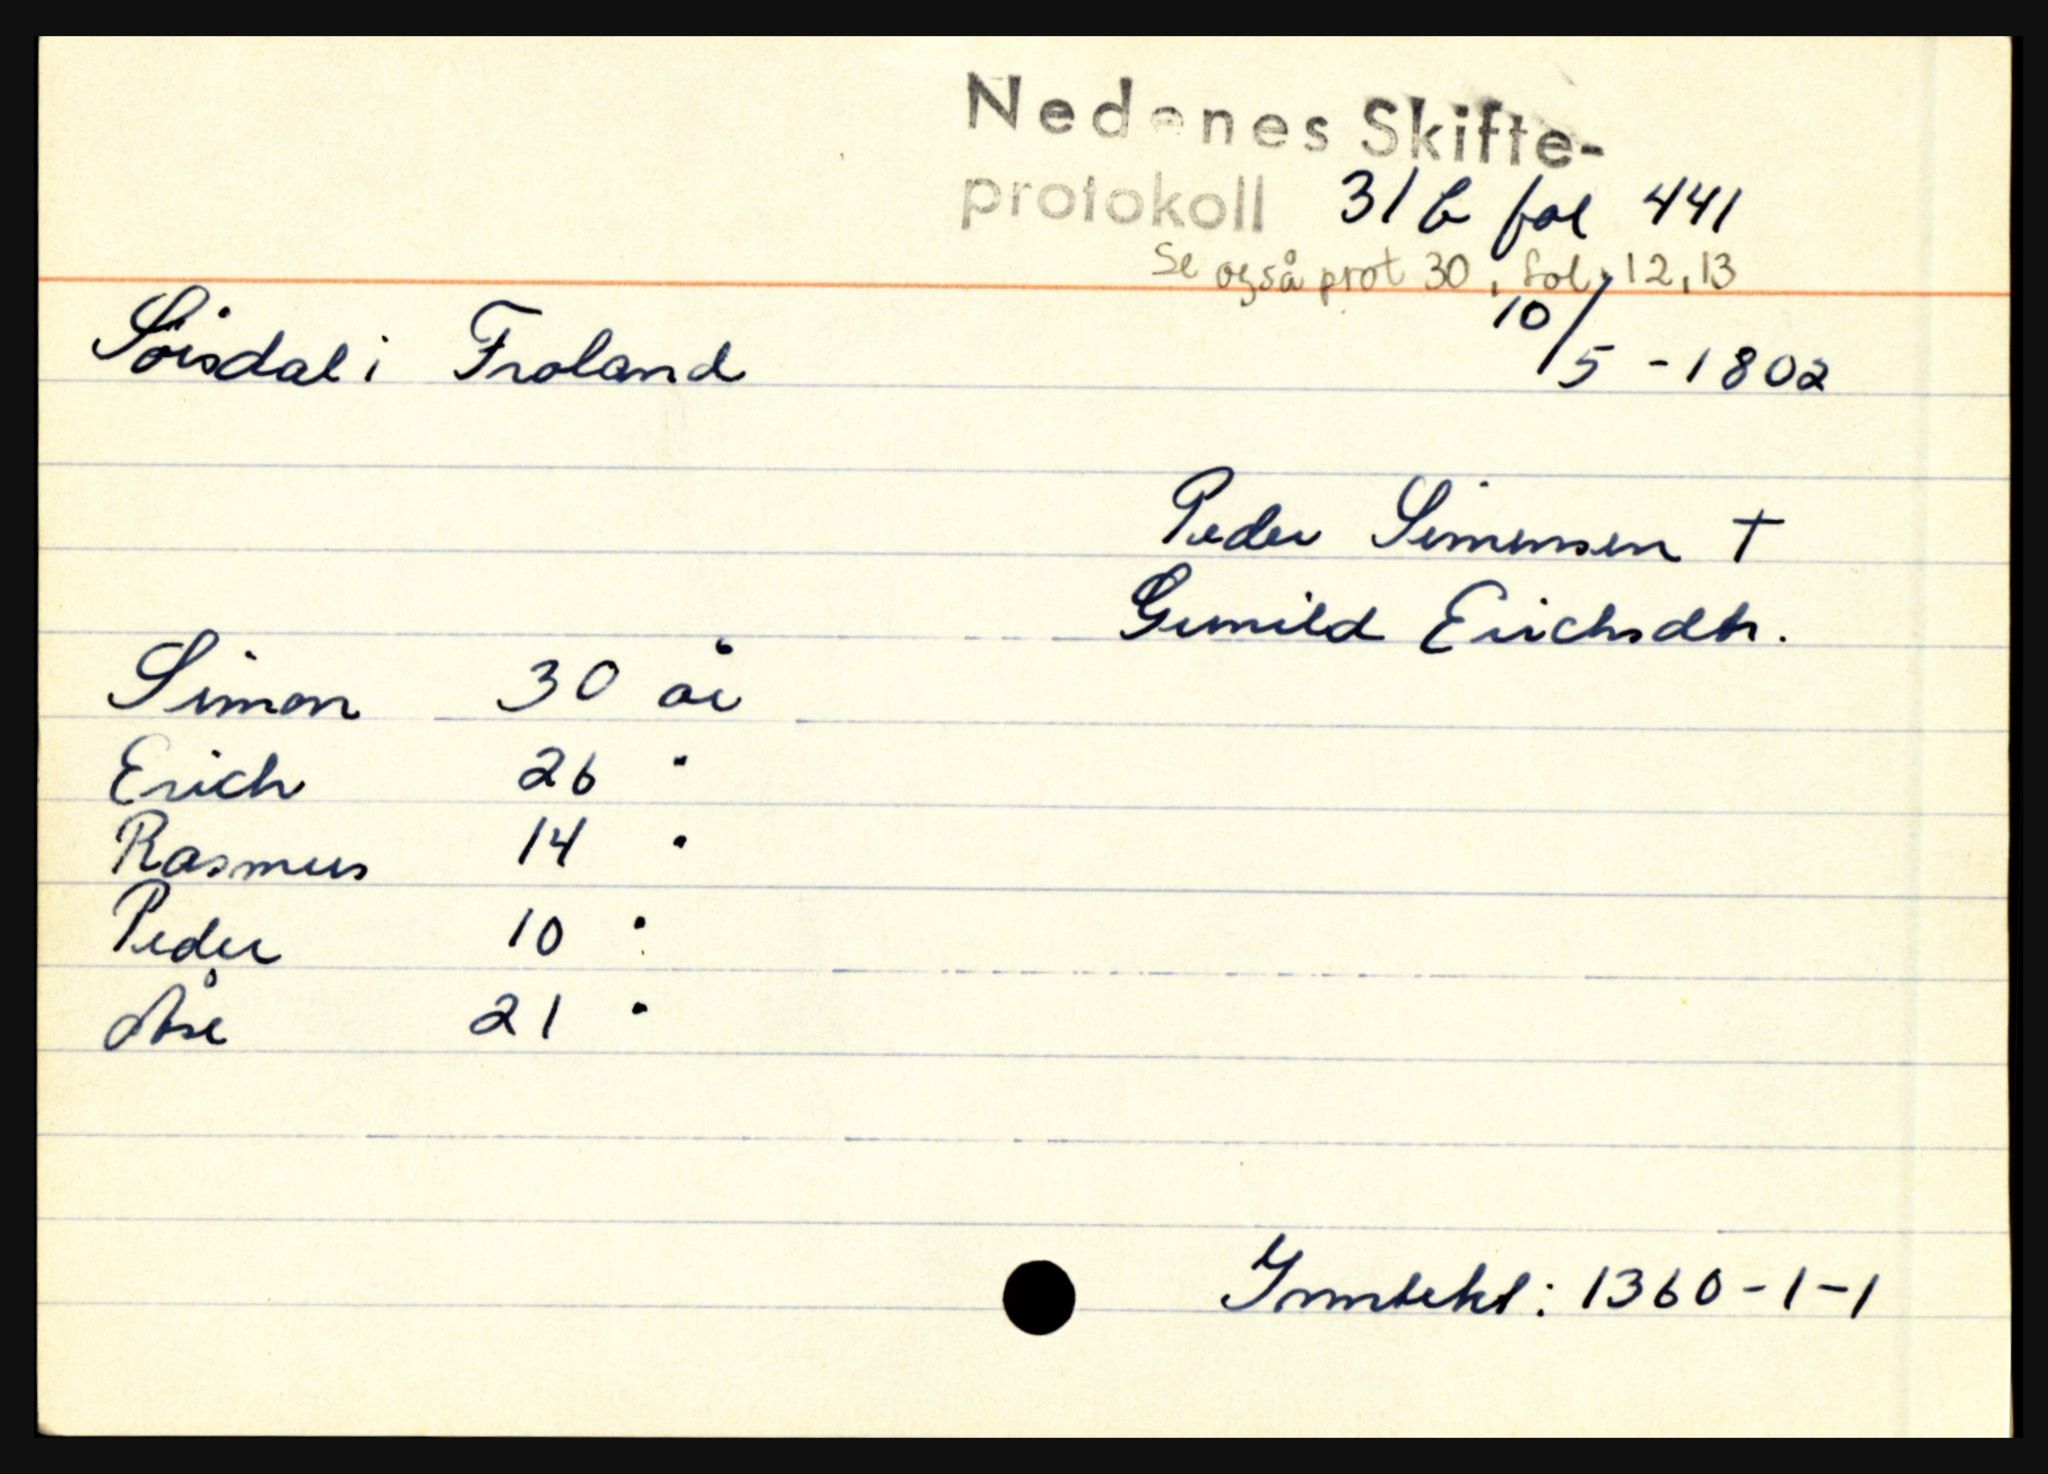 Nedenes Skifte-
protokoll 31 b fol 441
Se også prot 30, fol, 12, 13
Sørsdal i Froland 10/5 - 1802
Peder Simensen †
Gunild Erichsdtr.
Simon 30 år
Erich 26 "
Rasmus 14 "
Peder 10 "
Åse 21 "
Inntekt: 1360-1-1